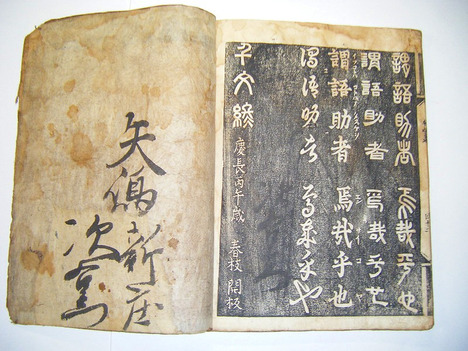 謂語助者 焉哉乎也
謂語助者 焉哉乎也
謂語助者 焉哉乎也
謂語助者 焉哉乎也
千文終 慶長丙午歳 春枝開板
矢嶋新庄
次